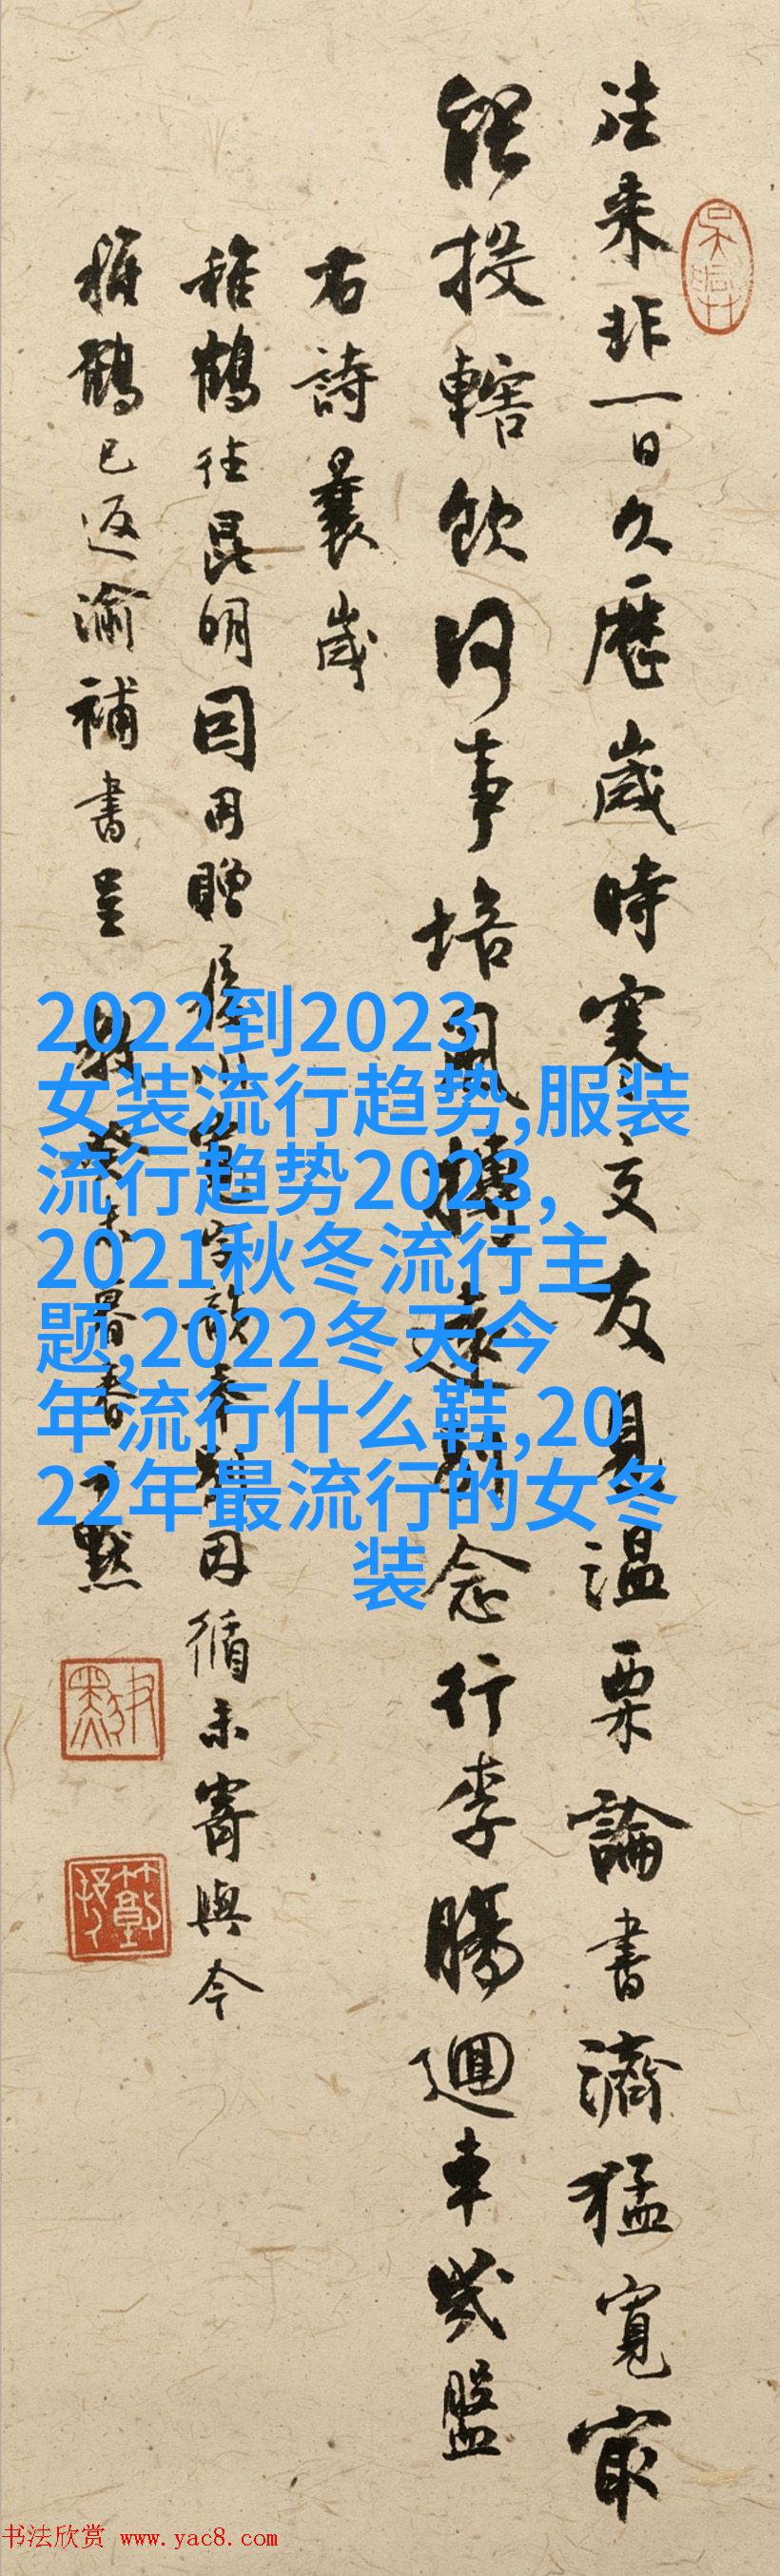 往来非一日久歷歲時寒交友見温栗論書濟猛寬最
能投轄飲何事培風摶遠別念行李腸迴車幾盤
右詩曩歲
稚鶴往昆明因用贈
稚鶴已返渝補書呈
因循未寄與今
默
2022到2023
女装流行趋势,服装
流行趋势2023,
2021秋冬流行主
题,2022冬天今
年流行什么鞋,20
22年最流行的女冬
装
书法欣赏 www.yac8.com